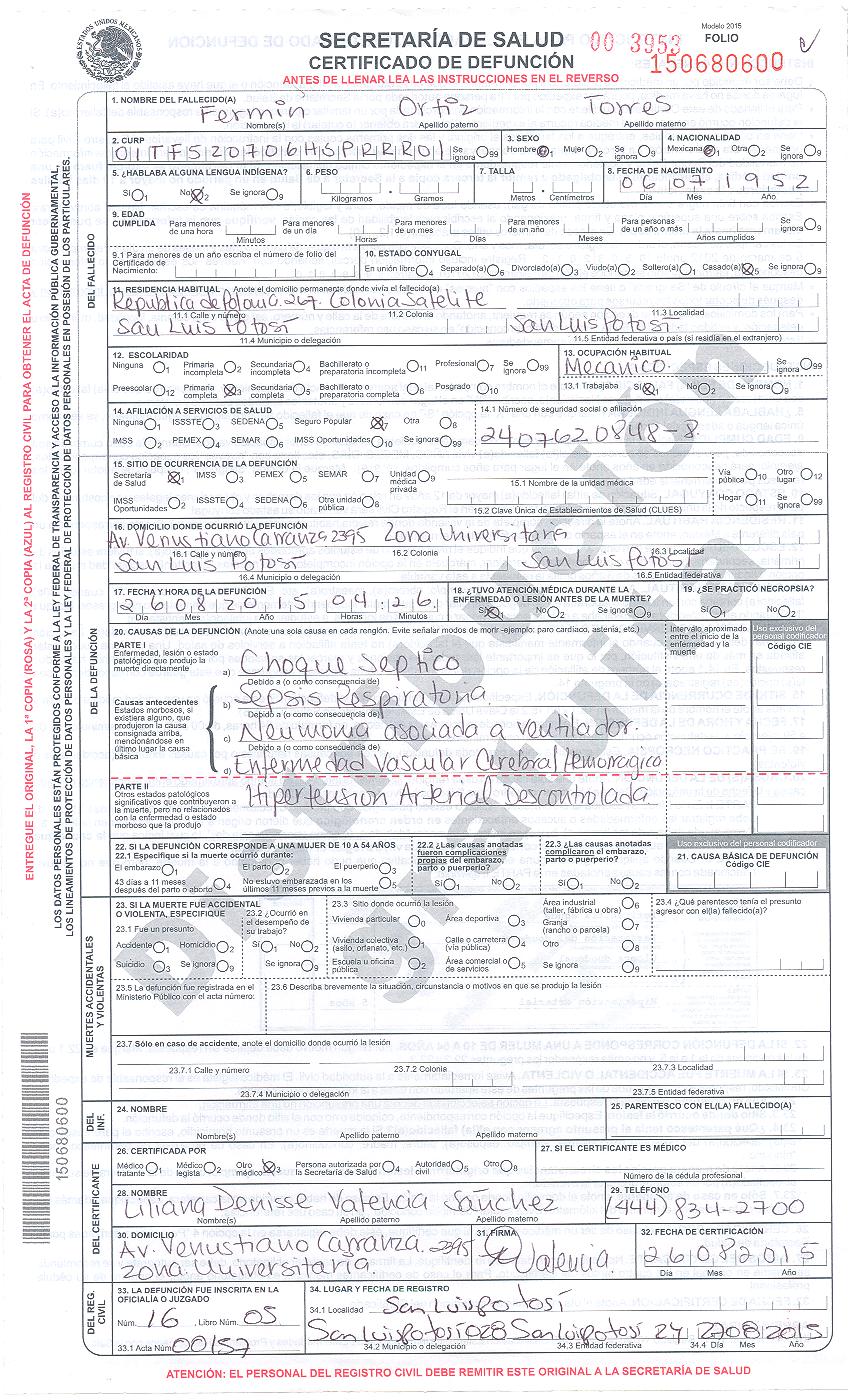 ESTADOS UNIDOS MEXICANOS
SECRETARÍA DE SALUD
CERTIFICADO DE DEFUNCIÓN
ANTES DE LLENAR LEA LAS INSTRUCCIONES EN EL REVERSO
Modelo 2015
FOLIO
00 3953
150680600
ENTREGUE EL ORIGINAL, LA 1ª COPIA (ROSA) Y LA 2ª COPIA (AZUL) AL REGISTRO CIVIL PARA OBTENER EL ACTA DE DEFUNCIÓN
LOS DATOS PERSONALES ESTÁN PROTEGIDOS CONFORME A LA LEY FEDERAL DE TRANSPARENCIA Y ACCESO A LA INFORMACIÓN PÚBLICA GUBERNAMENTAL,
LOS LINEAMIENTOS DE PROTECCIÓN DE DATOS PERSONALES Y LA LEY FEDERAL DE PROTECCIÓN DE DATOS PERSONALES EN POSESIÓN DE LOS PARTICULARES.
150680600
Distribución gratuita
DEL FALLECIDO
1. NOMBRE DEL FALLECIDO(A)
Fermin Ortiz Torres
Nombre(s) Apellido paterno Apellido materno
2. CURP
OITF520706HSPRRR01 Se ignora 99
3. SEXO
Hombre 1 Mujer 2 Se ignora 9
4. NACIONALIDAD
Mexicana 1 Otra 2 Se ignora 9
5. ¿HABLABA ALGUNA LENGUA INDÍGENA?
Sí 1 No 2 Se ignora 9
6. PESO
Kilogramos Gramos
7. TALLA
Metros Centímetros
8. FECHA DE NACIMIENTO
06 07 1952
Día Mes Año
9. EDAD CUMPLIDA
Para menores de una hora Minutos
Para menores de un día Horas
Para menores de un mes Días
Para menores de un año Meses
Para personas de un año o más Años cumplidos
Se ignora 9
9.1 Para menores de un año escriba el número de folio del Certificado de Nacimiento:
10. ESTADO CONYUGAL
En unión libre 4 Separado(a) 6 Divorciado(a) 3 Viudo(a) 2 Soltero(a) 1 Casado(a) 5 Se ignora 9
11. RESIDENCIA HABITUAL Anote el domicilio permanente donde vivía el fallecido(a)
Republica de Polonia. 267. Colonia Satelite
11.1 Calle y número 11.2 Colonia 11.3 Localidad
San Luis Potosí San Luis Potosí.
11.4 Municipio o delegación 11.5 Entidad federativa o país (si residía en el extranjero)
12. ESCOLARIDAD
Ninguna 1 Primaria incompleta 2 Secundaria incompleta 4 Bachillerato o preparatoria incompleta 11 Profesional 7 Se ignora 99
Preescolar 12 Primaria completa 3 Secundaria completa 5 Bachillerato o preparatoria completa 6 Posgrado 10
13. OCUPACIÓN HABITUAL
Mecanico. Se ignora 99
13.1 Trabajaba Sí 1 No 2 Se ignora 9
14. AFILIACIÓN A SERVICIOS DE SALUD
Ninguna 1 ISSSTE 3 SEDENA 5 Seguro Popular 7 Otra 8
IMSS 2 PEMEX 4 SEMAR 6 IMSS Oportunidades 10 Se ignora 99
14.1 Número de seguridad social o afiliación
2407620848-8
DE LA DEFUNCIÓN
15. SITIO DE OCURRENCIA DE LA DEFUNCIÓN
Secretaría de Salud 1 IMSS 3 PEMEX 5 SEMAR 7 Unidad médica privada 9
IMSS Oportunidades 2 ISSSTE 4 SEDENA 6 Otra unidad pública 8
15.1 Nombre de la unidad médica
15.2 Clave Única de Establecimientos de Salud (CLUES)
Vía pública 10 Otro lugar 12
Hogar 11 Se ignora 99
16. DOMICILIO DONDE OCURRIÓ LA DEFUNCIÓN
Av. Venustiano Carranza 2395 Zona Universitaria
16.1 Calle y número 16.2 Colonia 16.3 Localidad
San Luis Potosí San Luis Potosí
16.4 Municipio o delegación 16.5 Entidad federativa
17. FECHA Y HORA DE LA DEFUNCIÓN
26 08 2015 04:26.
Día Mes Año Horas Minutos
18. ¿TUVO ATENCIÓN MÉDICA DURANTE LA ENFERMEDAD O LESIÓN ANTES DE LA MUERTE?
Sí 1 No 2 Se ignora 9
19. ¿SE PRACTICÓ NECROPSIA?
Sí 1 No 2
20. CAUSAS DE LA DEFUNCIÓN (Anote una sola causa en cada renglón. Evite señalar modos de morir-ejemplo: paro cardiaco, astenia, etc.)
Intervalo aproximado entre el inicio de la enfermedad y la muerte
Uso exclusivo del personal codificador
Código CIE
PARTE I
Enfermedad, lesión o estado patológico que produjo la muerte directamente
a) Choque Septico
Debido a (o como consecuencia de)
Causas antecedentes
Estados morbosos, si existiera alguno, que produjeron la causa consignada arriba, mencionándose en último lugar la causa básica
b) Sepsis Respiratoria
Debido a (o como consecuencia de)
c) Neumonia asociada a ventilador.
Debido a (o como consecuencia de)
d) Enfermedad Vascular Cerebral Hemorragico
PARTE II
Otros estados patológicos significativos que contribuyeron a la muerte, pero no relacionados con la enfermedad o estado morboso que la produjo
Hipertension Arterial Descontrolada
22. SI LA DEFUNCIÓN CORRESPONDE A UNA MUJER DE 10 A 54 AÑOS
22.1 Especifique si la muerte ocurrió durante:
El embarazo 1 El parto 2 El puerperio 3
43 días a 11 meses después del parto o aborto 4 No estuvo embarazada en los últimos 11 meses previos a la muerte 5
22.2 ¿Las causas anotadas fueron complicaciones propias del embarazo, parto o puerperio?
Sí 1 No 2
22.3 ¿Las causas anotadas complicaron el embarazo, parto o puerperio?
Sí 1 No 2
Uso exclusivo del personal codificador
21. CAUSA BÁSICA DE DEFUNCIÓN
Código CIE
MUERTES ACCIDENTALES Y VIOLENTAS
23. SI LA MUERTE FUE ACCIDENTAL O VIOLENTA, ESPECIFIQUE
23.1 Fue un presunto
Accidente 1 Homicidio 2
Suicidio 3 Se ignora 9
23.2 ¿Ocurrió en el desempeño de su trabajo?
Sí 1 No 2
Se ignora 9
23.3 Sitio donde ocurrió la lesión
Vivienda particular 0 Área deportiva 3 Área industrial (taller, fábrica u obra) 6
Vivienda colectiva (asilo, orfanato, etc.) 1 Calle o carretera (vía pública) 4 Granja (rancho o parcela) 7
Escuela u oficina pública 2 Área comercial o de servicios 5 Otro 8
Se ignora 9
23.4 ¿Qué parentesco tenía el presunto agresor con el(la) fallecido(a)?
23.5 La defunción fue registrada en el Ministerio Público con el acta número:
23.6 Describa brevemente la situación, circunstancia o motivos en que se produjo la lesión
23.7 Sólo en caso de accidente, anote el domicilio donde ocurrió la lesión
23.7.1 Calle y número 23.7.2 Colonia 23.7.3 Localidad
23.7.4 Municipio o delegación 23.7.5 Entidad federativa
DEL INF.
24. NOMBRE
Nombre(s) Apellido paterno Apellido materno
25. PARENTESCO CON EL(LA) FALLECIDO(A)
DEL CERTIFICANTE
26. CERTIFICADA POR
Médico tratante 1 Médico legista 2 Otro médico 3 Persona autorizada por la Secretaría de Salud 4 Autoridad civil 5 Otro 8
27. SI EL CERTIFICANTE ES MÉDICO
Número de la cédula profesional
28. NOMBRE
Liliana Denisse Valencia Sánchez
Nombre(s) Apellido paterno Apellido materno
29. TELÉFONO
(444) 834-2700
30. DOMICILIO
Av. Venustiano Carranza. 2395
Zona. Universitaria.
31. FIRMA
Valencia.
32. FECHA DE CERTIFICACIÓN
26 08 2015
Día Mes Año
DEL REG. CIVIL
33. LA DEFUNCIÓN FUE INSCRITA EN LA OFICIALÍA O JUZGADO
Núm. 16 Libro Núm. 05
33.1 Acta Núm. 00157
34. LUGAR Y FECHA DE REGISTRO
34.1 Localidad San Luis potosí
San Luis potosí 028 San Luis potosí 24 27 08 2015
34.2 Municipio o delegación 34.3 Entidad federativa 34.4 Día Mes Año
ATENCIÓN: EL PERSONAL DEL REGISTRO CIVIL DEBE REMITIR ESTE ORIGINAL A LA SECRETARÍA DE SALUD